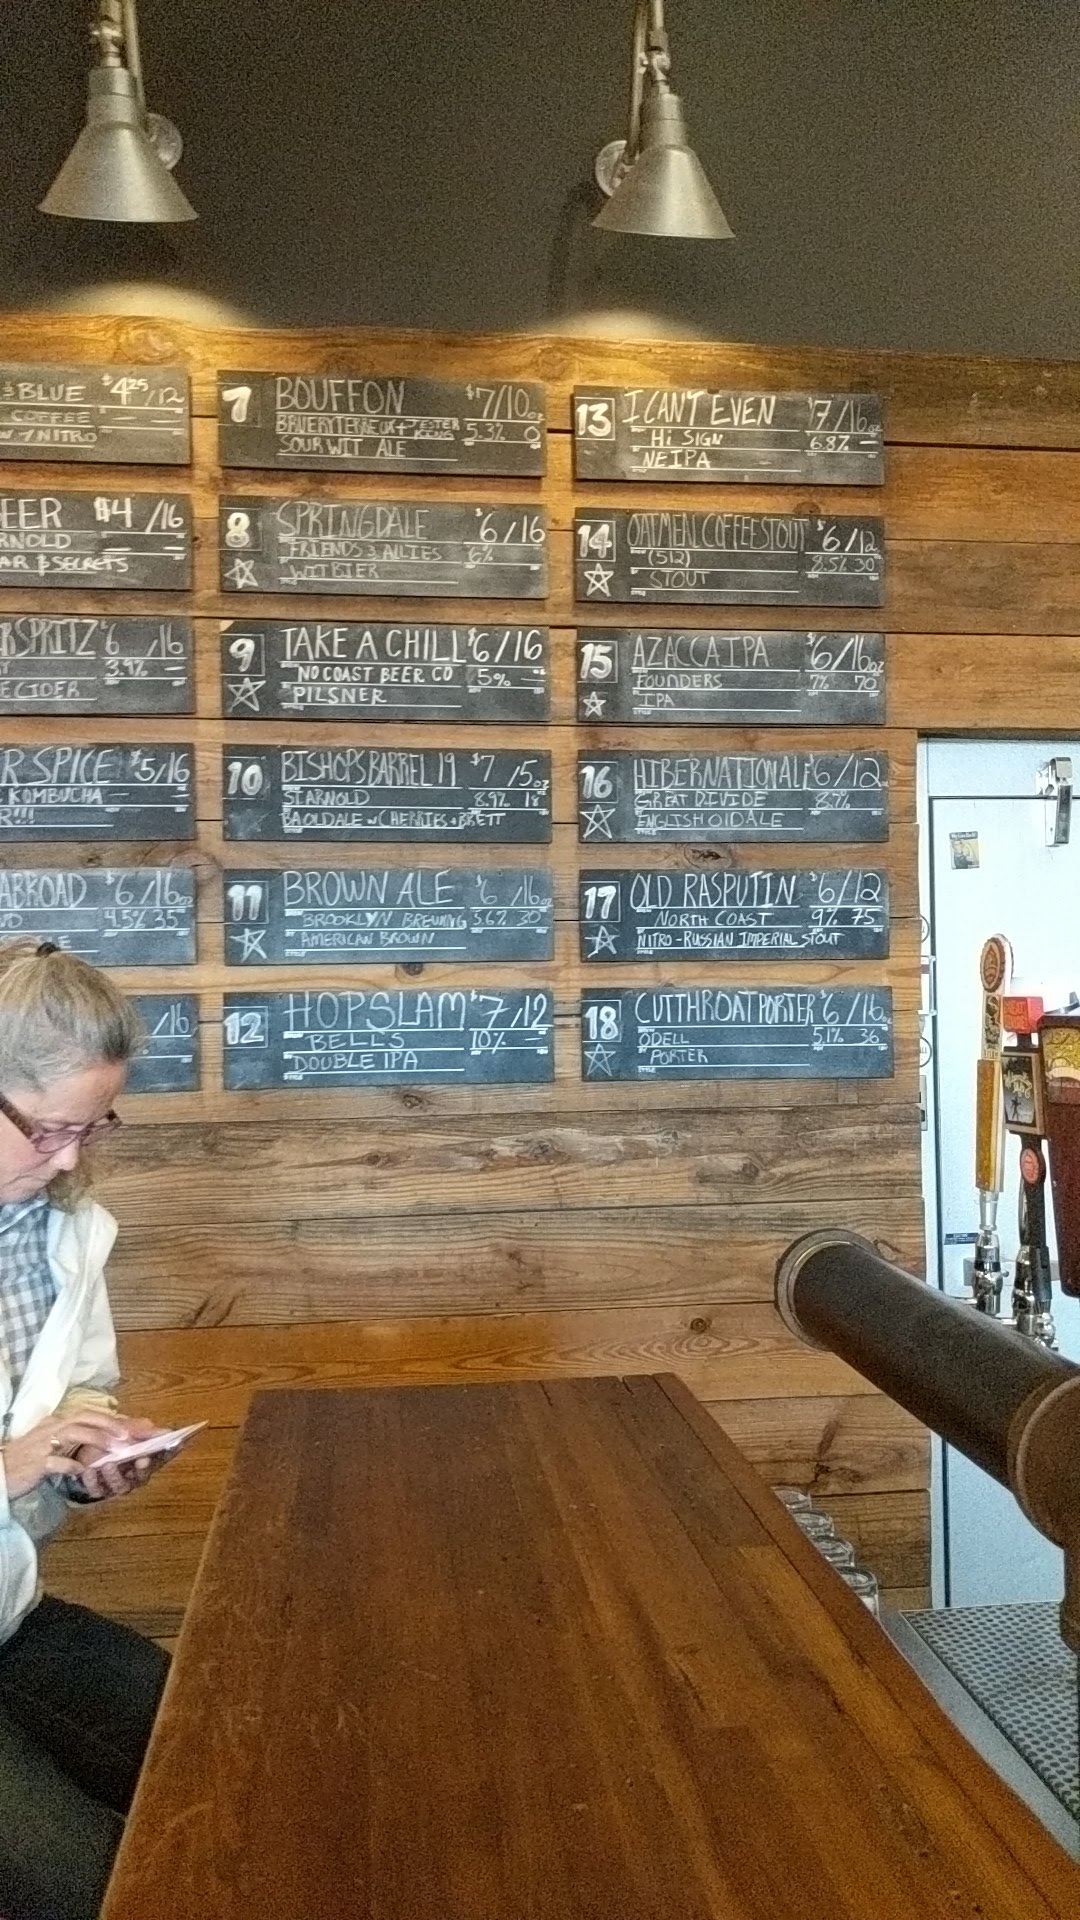 & BLUE $4.25/12
COFFEE
W/NITRO
EER $4/16
ARNOLD
AR & SECRETS
SPRITZ $6/16
3.9%
E CIDER
R SPICE $5/16
KOMBUCHA
R!!!
ABROAD $6/16oz
ND 4.5% 35
/16
7 BOUFFON $7/10oz
BRUERY TERREUX + JESTER KING 5.3% 0
SOUR WIT ALE
8 SPRINGDALE $6/16
FRIENDS & ALLIES 6%
WITBIER
9 TAKE A CHILL $6/16
NO COAST BEER CO 5%
PILSNER
10 BISHOPS BARREL 19 $7/5oz
ST ARNOLD 8.9% 18
BA OLDALE W CHERRIES + BRETT
11 BROWN ALE $6/16oz
BROOKLYN BREWING 5.6% 30
AMERICAN BROWN
12 HOPSLAM $7/12
BELLS 10%
DOUBLE IPA
13 I CAN'T EVEN $7/16oz
Hi SIGN 6.8%
NEIPA
14 OATMEAL COFFEE STOUT $6/12
(512) 8.5% 30
STOUT
15 AZACCA IPA $6/16oz
FOUNDERS 7% 70
IPA
16 HIBERNATION ALE $6/12
GREAT DIVIDE 8.7%
ENGLISH OLD ALE
17 OLD RASPUTIN $6/12
NORTH COAST 9% 75
NITRO-RUSSIAN IMPERIAL STOUT
18 CUTTHROAT PORTER $6/16oz
ODELL 5.1% 36
PORTER